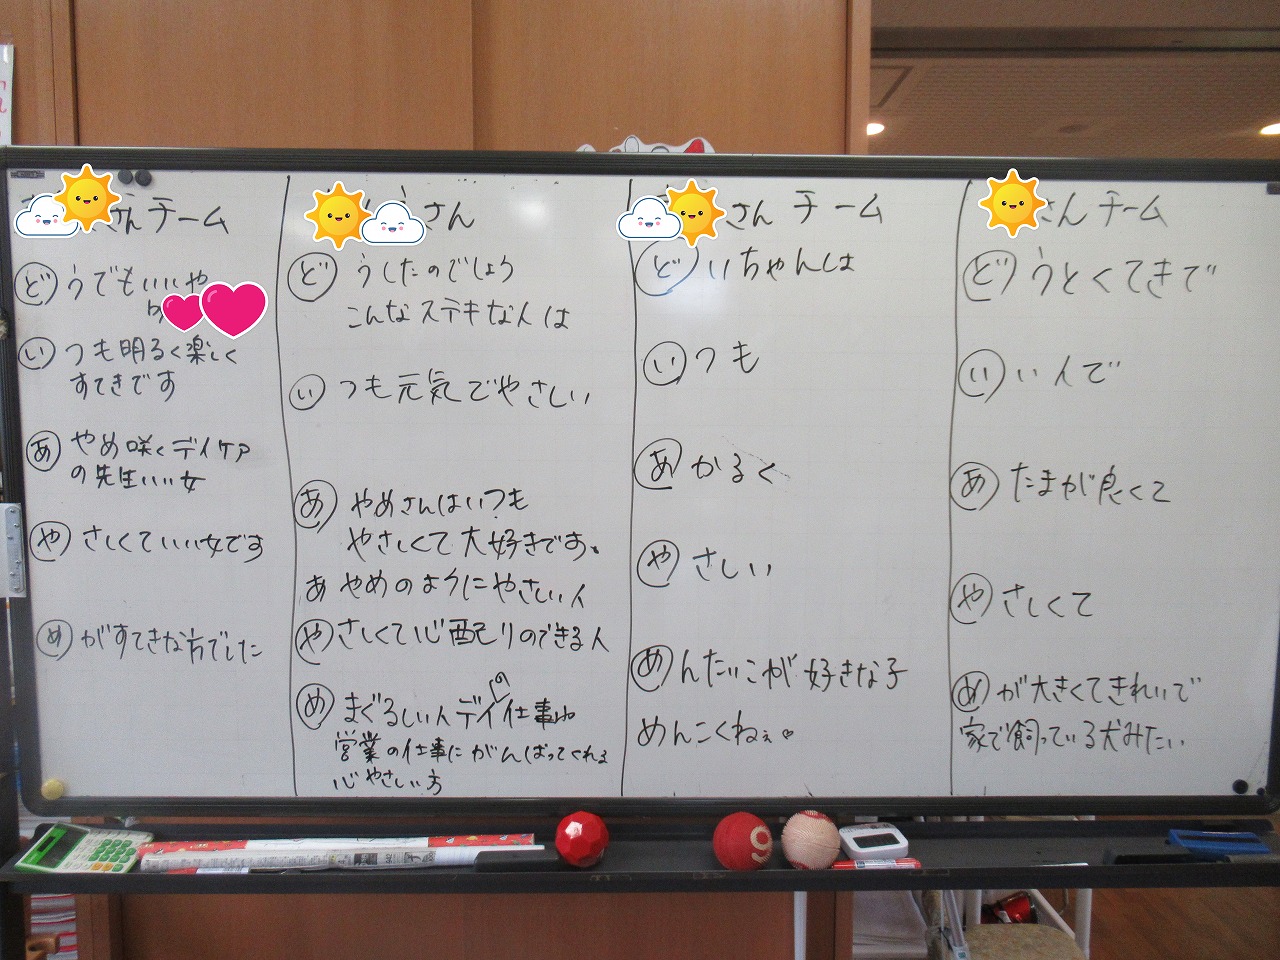 さんチーム
どうでもいいや
いつも明るく楽しく
すてきです
あやめ咲くデイケア
の先生いい女
やさしくていい女です
めがすてきな方でした
さん
どうしたのでしょう
こんなステキな人は
いつも元気でやさしい
あやめさんはいつも
やさしくて大好きです。
あやめのようにやさしい人
やさしくて心配りのできる人
めまぐるしい人デイの仕事や
営業の仕事にがんばってくれる
心やさしい方
さんチーム
どいちゃんは
いつも
あかるく
やさしい
めんたいこが好きな子
めんこくねぇ♡
さんチーム
どうとくてきで
いい人で
あたまが良くて
やさしくて
めが大きくてきれいで
家で飼っている犬みたい
9